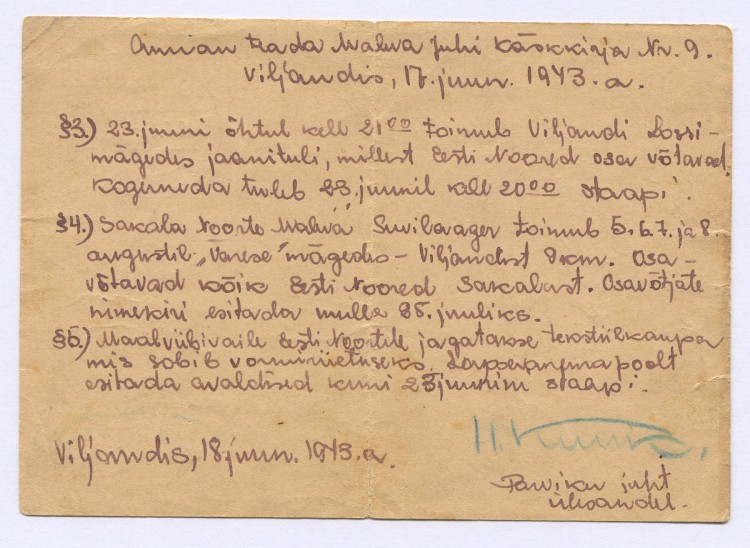 Annan teada Malwa Juhi Käskkirja Nr. 9.
Viljandis, 17. juun. 1943. a.
§3.) 23. juuni õhtul kell 21⁰⁰ toimub Viljandi Lossi-
mägedes jaanituli, millest Eesti Noored osa võtavad.
Koguneda tuleb 23. juunil kell 20⁰⁰ staapi.
§4.) Sakala Noorte Malwa Suvilaager toimub 5. 6. 7. ja 8.
augustil „Varese" mägedes - Viljandist 9 km. Osa-
võtavad kõik Eesti Noored Sakalast. Osavõtjate
nimekiri esitada mulle 25. juuliks.
§5.) Maalviibivaile Eesti Noortele jagatakse tekstiilkaupa
mis sobib vormiriietuseks. Lapsevanema poolt
esitada avaldised kuni 25 juunini staapi.
Viljandis, 18. juun. 1943. a.
Parviku juht